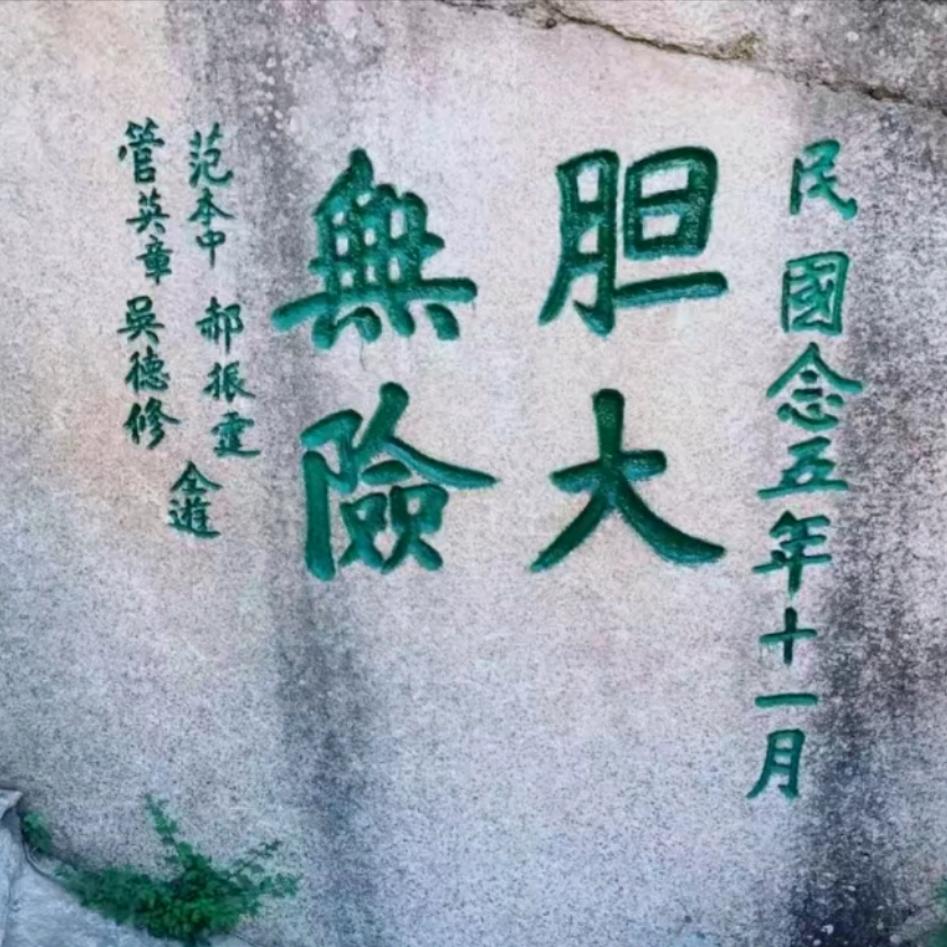 民國念五年十一月
胆大
無險
范本中 郝振霆
管英章 吳德修
仝遊